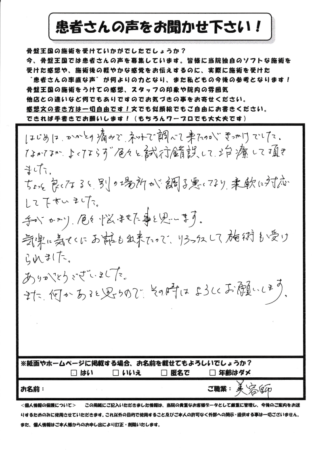 患者さんの声をお聞かせ下さい！
骨盤王国の施術を受けていかがでしたでしょうか？
今、骨盤王国では患者さんの声を募集しています。皆様に当院独自のソフトな施術を
受けた感想や、施術後の軽やかな感覚をお伝えするのに、実際に施術を受けた
“患者さんの率直な声”が何よりの力となり、また私どもの今後の参考となります！
骨盤王国の施術をうけての感想、スタッフの印象や院内の雰囲気
他店との違いなど何でもありですのでお気づきの事をお寄せください。
感想文の長さは一切自由です！文でも似顔絵でもご自由にお書きください。
できれば手書きでお願いします！（もちろんワープロでも大丈夫です）
はじめは、かかとの痛みで ネットで調べて来たのが きっかけでした。
なかなか よくならず 色々と試行錯誤して、治療して頂き
ました。
ちょっと良くなると、別の場所が 調子悪くなり、柔軟に対応
して下さいました。
手がかかり、色々悩ませた事と思います。
気楽に気さくに お話も出来たので、リラックスして施術も受け
られました。
ありがとうございました。
また、何かあると思うので、その時は よろしくお願いします。
※紙面やホームページに掲載する場合、お名前を載せてもよろしいでしょうか？
□ はい □ いいえ □ 匿名で □ 年齢はダメ
お名前： ご職業：美容師
＜個人情報の保護について＞ この用紙にご記入いただきました情報は、当院の貴重なお客様データとして厳重に管理し、今後のご案内をお送
りするためのみに使用させていただきます。これ以外の目的で使用すること及びご本人の許可なく外部への開示・提供する事は一切ございません。
また、個人情報はご本人様からのお申し出により訂正・削除いたします。